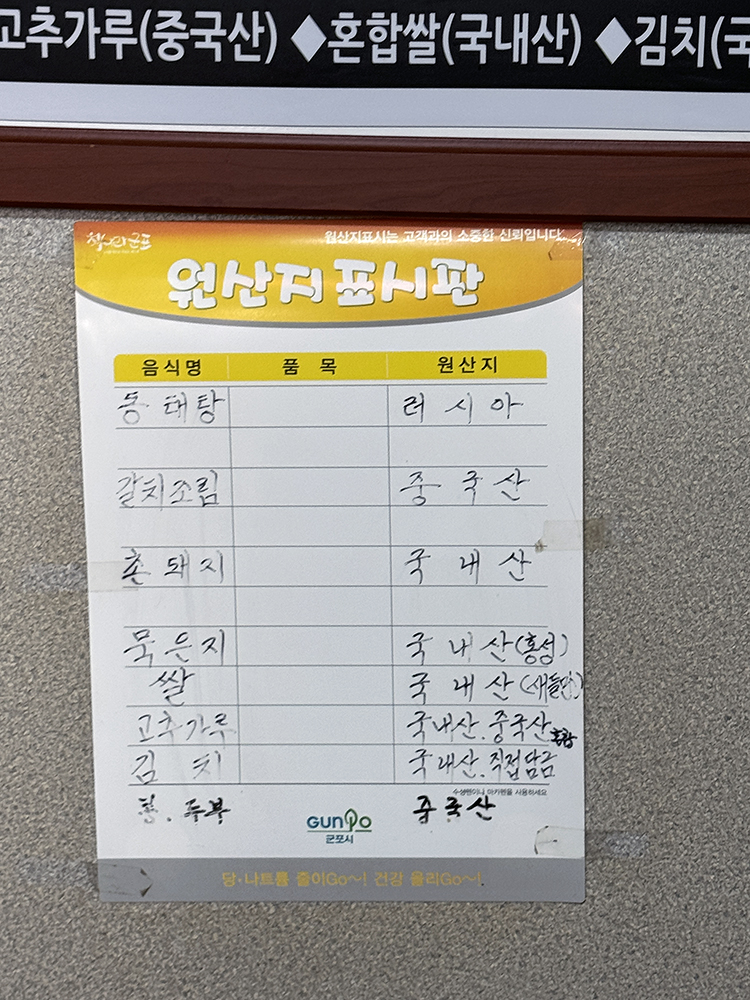 고추가루(중국산) ◆혼합쌀(국내산) ◆김치(국
책나라군포 원산지표시는 고객과의 소중한 신뢰입니다.
원산지 표시판
음식명 품 목 원산지
동태탕 러시아
갈치조림 중국산
촌돼지 국내산
묵은지 국내산(홍성)
쌀 국내산
고추가루 국내산.중국산 혼합
김치 국내산.직접담금
수성펜이나 마카펜을 사용하세요
콩.두부 중국산
GUNPO
군포시
당·나트륨 줄이Go~! 건강 올리Go~!